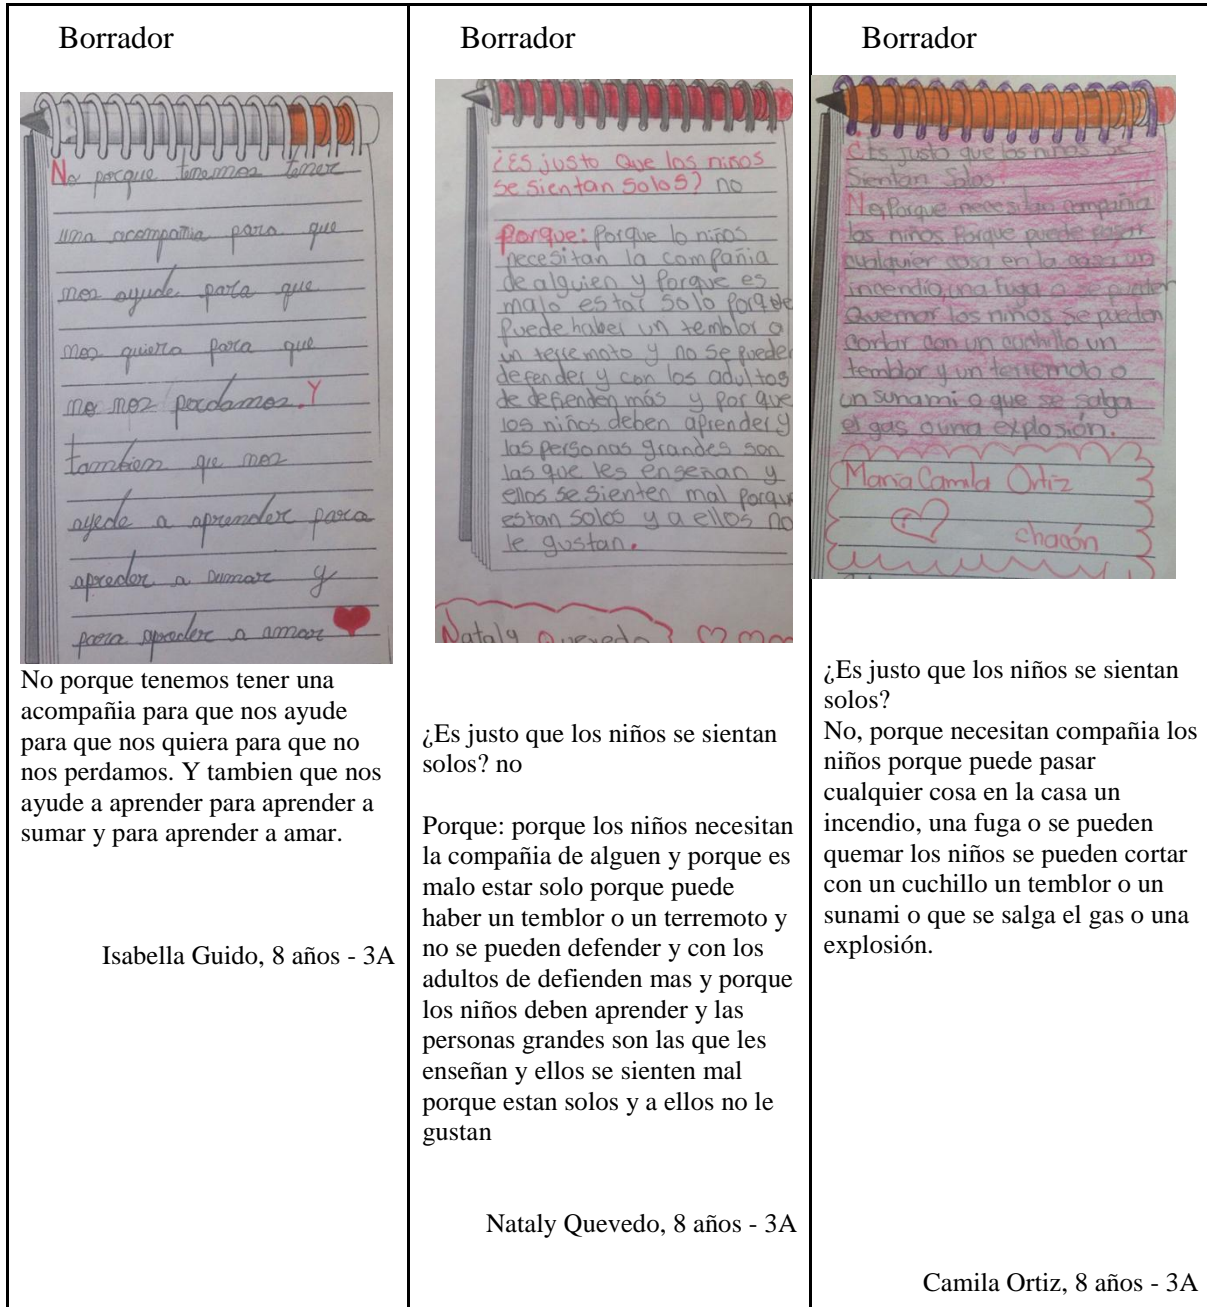 Borrador
No porque tenemos tener
una acompañia para que
nos ayude para que
nos quiera para que
no nos perdamos. Y
tambien que nos
ayede a aprender para
apreder a sumar y
para apreder a amar
No porque tenemos tener una
acompañia para que nos ayude
para que nos quiera para que no
nos perdamos. Y tambien que nos
ayude a aprender para aprender a
sumar y para aprender a amar.
Isabella Guido, 8 años - 3A
Borrador
¿Es justo que los niños
se sientan solos? no
Porque: Porque lo niños
necesitan la compañia
de alguien y porque es
malo estar solo porque
puede haber un temblor o
un terremoto y no se pueden
defender y con los adultos
de defienden más y por que
los niños deben aprender y
las personas grandes son
las que les enseñan y
ellos se sienten mal porque
estan solos y a ellos no
le gustan.
Nataly Quevedo
¿Es justo que los niños se sientan
solos? no
Porque: porque los niños necesitan
la compañia de alguen y porque es
malo estar solo porque puede
haber un temblor o un terremoto y
no se pueden defender y con los
adultos de defienden mas y porque
los niños deben aprender y las
personas grandes son las que les
enseñan y ellos se sienten mal
porque estan solos y a ellos no le
gustan
Nataly Quevedo, 8 años - 3A
Borrador
¿Es justo que los niños se
sientan solos.
No, Porque necesitan compañia
los niños Porque puede pasar
cualquier cosa en la casa un
incendio, una fuga o se pueden
Quemar los niños se pueden
cortar con un cuchillo un
temblor y un terremoto o
un sunami o que se salga
el gas o una explosión.
Maria Camila Ortiz
chacón
¿Es justo que los niños se sientan
solos?
No, porque necesitan compañia los
niños porque puede pasar
cualquier cosa en la casa un
incendio, una fuga o se pueden
quemar los niños se pueden cortar
con un cuchillo un temblor o un
sunami o que se salga el gas o una
explosión.
Camila Ortiz, 8 años - 3A